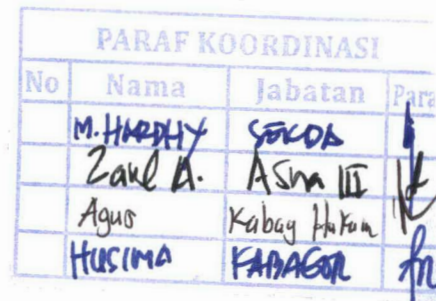 PARAF KOORDINASI
No Nama Jabatan Para
M. HARDHY SEKDA
Zaul A. Asm III
Agus Kabag Hukum
HUSIMA KABAGOR